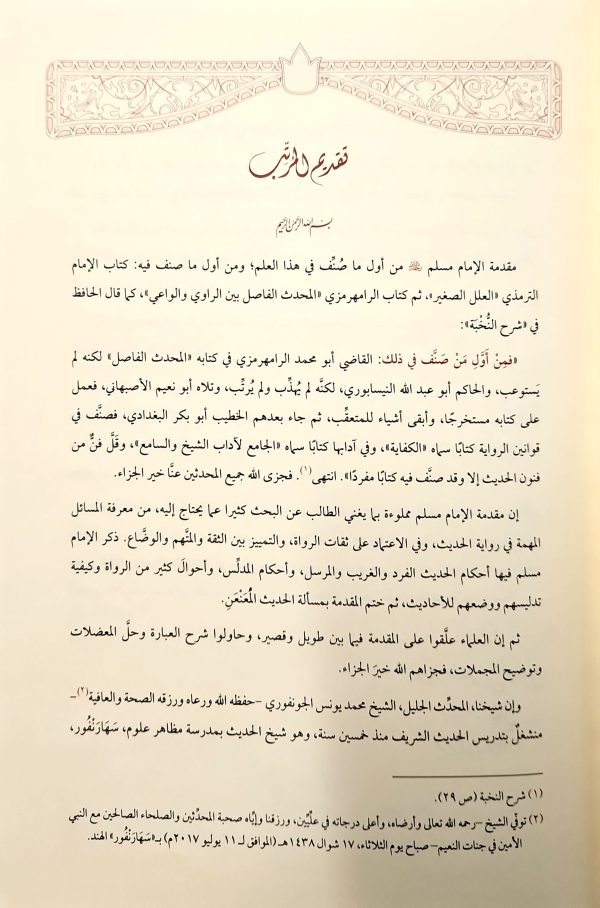 تقديم المرتِّب
بسم الله الرحمن الرحيم
مقدمة الإمام مسلم ﷺ من أول ما صُنِّف في هذا العلم؛ ومن أول ما صنف فيه: كتاب الإمام
الترمذي «العلل الصغير»، ثم كتاب الرامهرمزي «المحدث الفاصل بين الراوي والواعي»، كما قال الحافظ
في «شرح النُّخْبَة»:
«فمِنْ أَوَّلِ مَنْ صَنَّف في ذلك: القاضي أبو محمد الرامهرمزي في كتابه «المحدث الفاصل» لكنه لم
يَستوعب، والحاكم أبو عبد الله النيسابوري، لكنَّه لم يُهذِّب ولم يُرتِّب، وتلاه أبو نعيم الأصبهاني، فعمل
على كتابه مستخرجًا، وأبقى أشياء للمتعقِّب، ثم جاء بعدهم الخطيب أبو بكر البغدادي، فصنَّف في
قوانين الرواية كتابًا سماه «الكفاية»، وفي آدابها كتابًا سماه «الجامع لآداب الشيخ والسامع»، وقَلَّ فنٌّ من
فنون الحديث إلا وقد صنَّف فيه كتابًا مفردًا». انتهى(١). فجزى الله جميع المحدثين عنَّا خير الجزاء.
إن مقدمة الإمام مسلم مملوءة بما يغني الطالب عن البحث كثيرا عما يحتاج إليه، من معرفة المسائل
المهمة في رواية الحديث، وفي الاعتماد على ثقات الرواة، والتمييز بين الثقة والمتَّهم والوضَّاع. ذكر الإمام
مسلم فيها أحكام الحديث الفرد والغريب والمرسل، وأحكام المدلِّس، وأحوالَ كثير من الرواة وكيفية
تدليسهم ووضعهم للأحاديث، ثم ختم المقدمة بمسألة الحديث المُعَنْعَنِ.
ثم إن العلماء علَّقوا على المقدمة فيما بين طويل وقصير، وحاولوا شرح العبارة وحلَّ المعضلات
وتوضيح المجملات، فجزاهم الله خيرَ الجزاء.
وإن شيخنا، المحدِّث الجليل، الشيخ محمد يونس الجونفوري -حفظه الله ورعاه ورزقه الصحة والعافية(٢)-
منشغلٌ بتدريس الحديث الشريف منذ خمسين سنة، وهو شيخ الحديث بمدرسة مظاهر علوم، سَهَارَنْفُور،
(١) شرح النخبة (ص ٢٩).
(٢) توفِّي الشيخ -رحمه الله تعالى وأرضاه، وأعلى درجاته في علِّيِّين، ورزقنا وإيَّاه صحبة المحدِّثين والصلحاء الصالحين مع النبي
الأمين في جنات النعيم- صباح يوم الثلاثاء، ١٧ شوال ١٤٣٨هـ (الموافق لـ ١١ يوليو ٢٠١٧م) بـ«سَهَارَنْفُور» الهند.